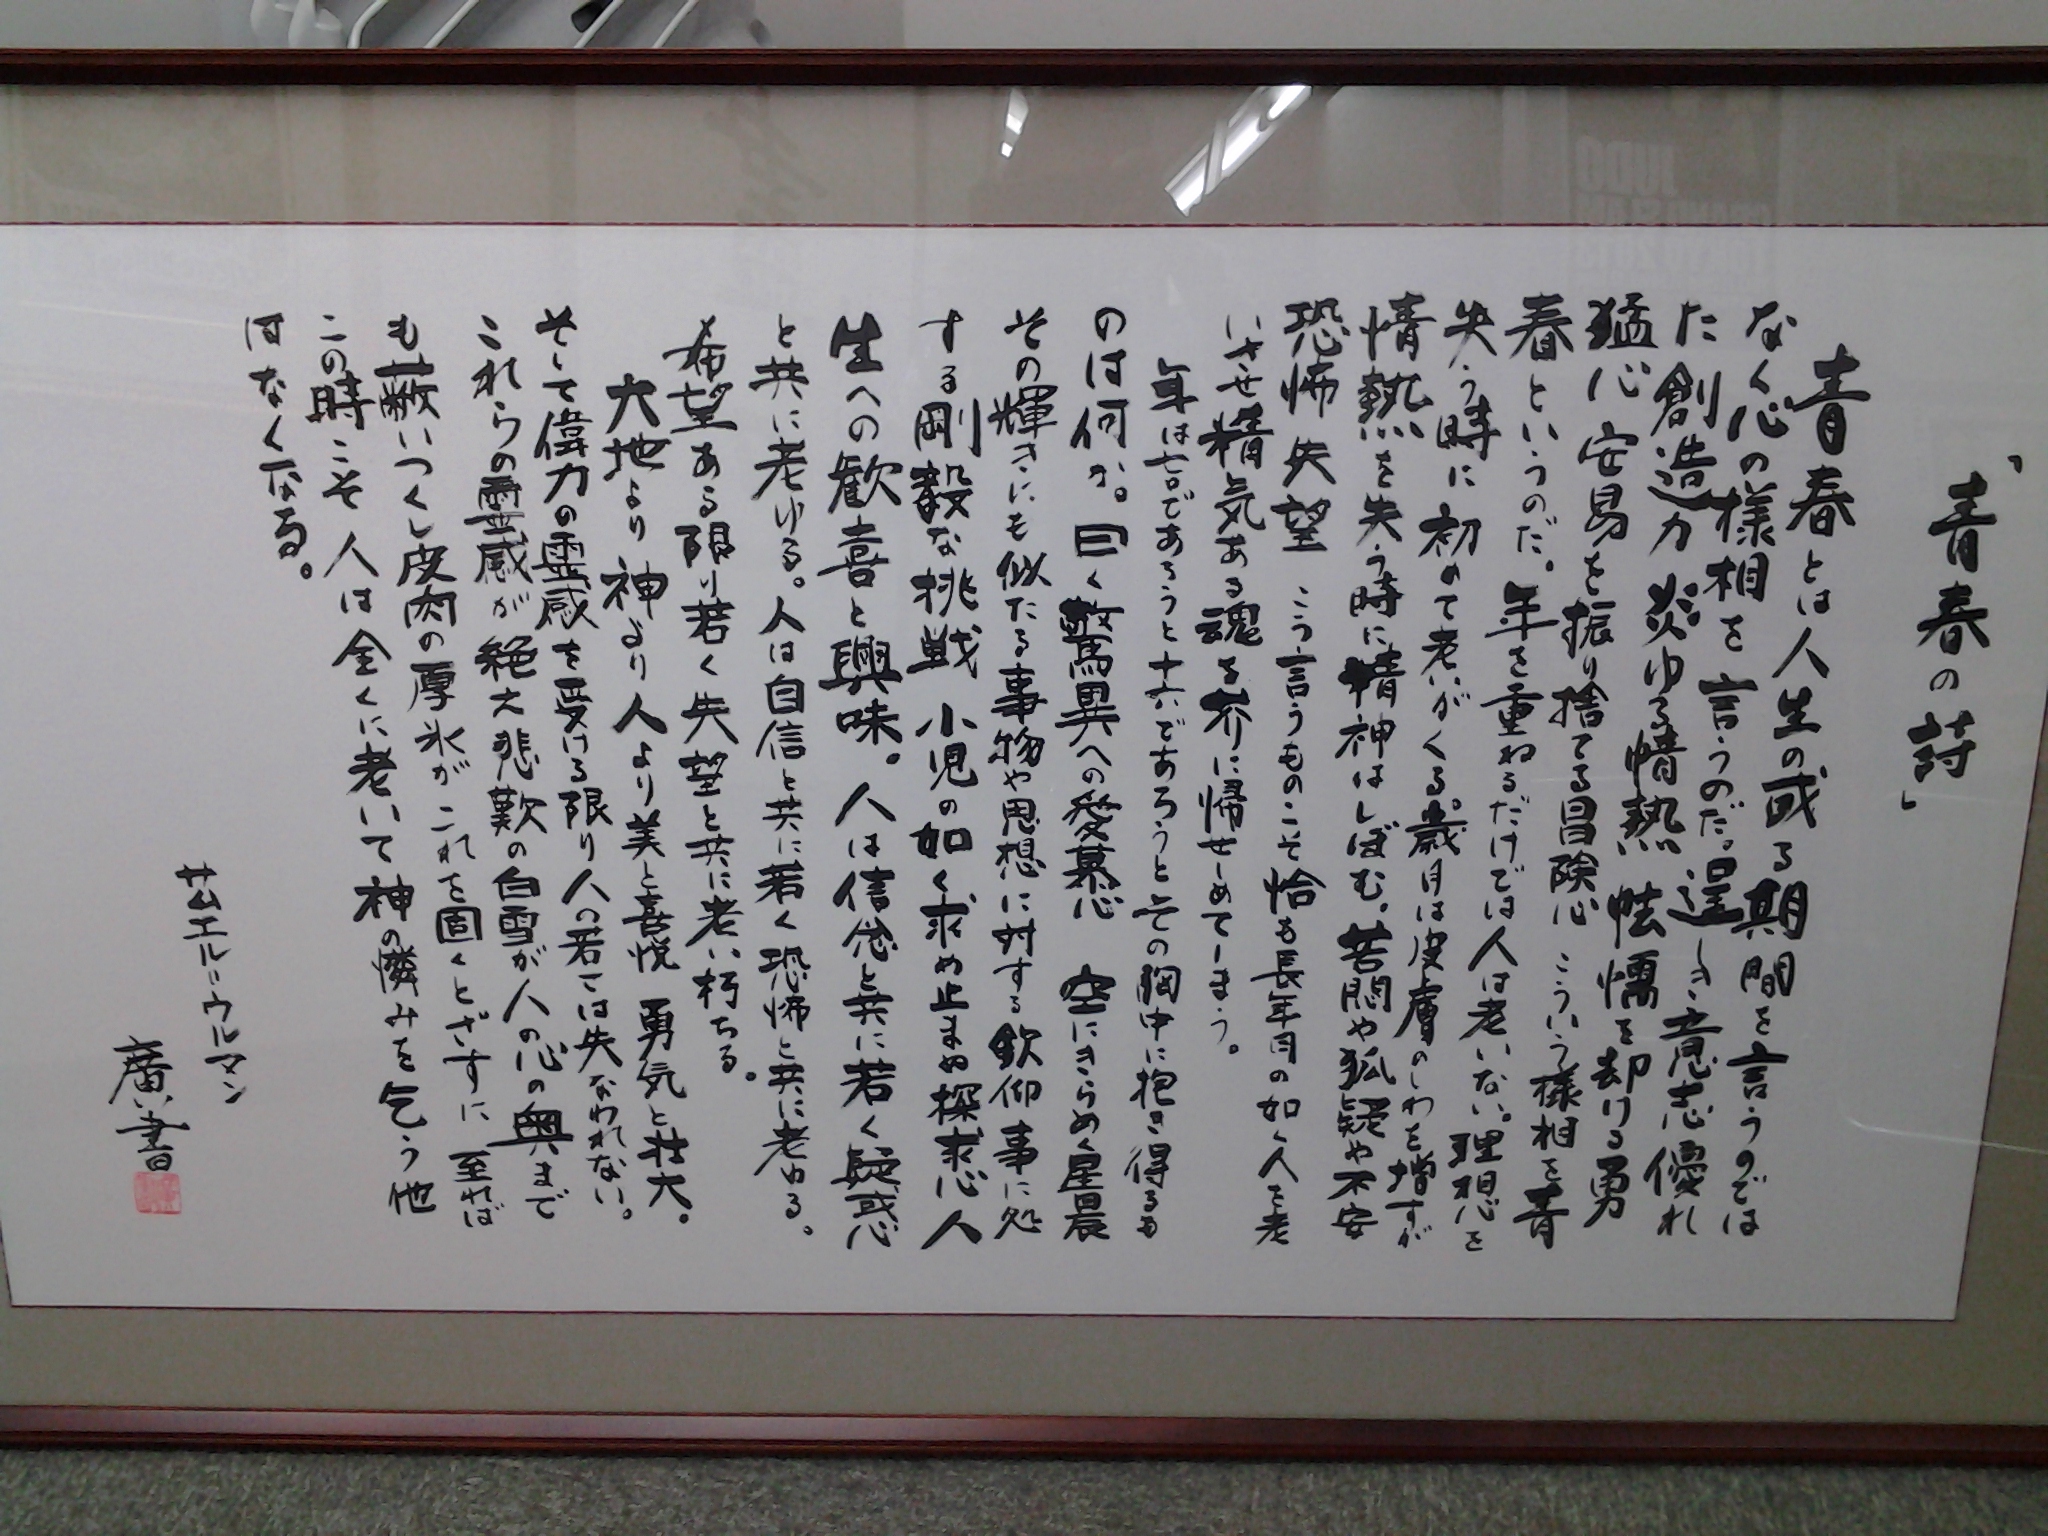 「青春の詩」
青春とは人生の或る期間を言うのでは
なく心の様相を言うのだ。逞しき意志優れ
た創造力炎ゆる情熱怯懦を却ける勇
猛心安易を振り捨てる冒険心こういう様相を青
春というのだ。年を重ねるだけでは人は老いない。理想を
失う時に初めて老いがくる。歳月は皮膚のしわを増すが
情熱を失う時に精神はしぼむ。苦悶や狐疑や不安
恐怖失望こう言うものこそ恰も長年月の如く人を老
いさせ精気ある魂を芥に帰せしめてしまう。
年は七十であろうと十六であろうとその胸中に抱き得るも
のは何か。曰く驚異への愛慕心 空にきらめく星晨
その輝きにも似たる事物や思想に対する欽仰事に処
する剛毅な挑戦小児の如く求め止まぬ探求心人
生への歓喜と興味。人は信念と共に若く疑惑
と共に老ゆる。人は自信と共に若く恐怖と共に老ゆる。
希望ある限り若く失望と共に老い朽ちる。
大地より神より人より美と喜悦勇気と壮大。
そして偉力の霊感を受ける限り人の若さは失なわれない。
これらの霊感が絶え悲歎の白雪が人の心の奥まで
も蔽いつくし皮肉の厚氷がこれを固くとざすに至れば
この時こそ人は全くに老いて神の憐みを乞う他
はなくなる。
サムエル=ウルマン
廣書